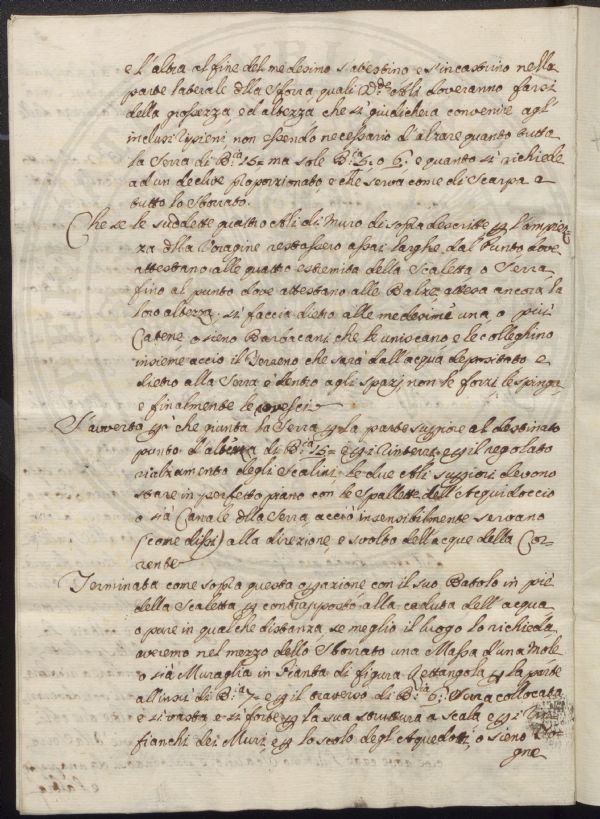 e l'altra al fine del medesimo s'attestino e s'incastrino nella
parte laterale della Sforra quali Ali doveranno farsi
della grossezza, ed altezza che si giudicherà convenire agl'
inclusi ripieni non essendo necessario d'alzare quanto tutta
la Serra di B.cia 15= ma sole B.cia 5: o 6: e quanto si richiede
ad un declive proporzionato e che serva come di Scarpa a
tutto lo Sborrato.
Che se le suddette quattro Ali di Muro di sopra descritte l'ampiez
za della Voragine restassero assai larghe dal Punto dove
attestano alle quattro estremità della Scaletta o Serra
fino al punto dove attestano alle Balze, attesa ancora la
loro altezza, si faccia dietro alle medesime una o più
Catene o sieno Barbacani che le uniscano e le colleghino
insieme acciò il Terreno che sarà dall'acqua depositato e
dietro alla Serra e dentro agli spazj non le forzi le spinga,
e finalmente le rovesci
S'averta che giunta la Serra la parte superiore al destinato
punto d'altezza di B.cia 15= e il regolato
rialzamento degli Scalini, le due Ali superiori devono
stare in perfetto piano con le Spallette dell'Acquidoccio
o sia Canale della Serra, acciò insensibilmente servano
(come dissi) alla direzione, e svolto dell'acque della Cor=
rente
Terminata come sopra questa operazione con il suo Batolo in piè
della Scaletta contrapposto alla caduta dell'acqua
o pure in qualche distanza se meglio il luogo lo richieda
avremo nel mezzo dello Sborrato una Massa d'una Mole
o sia Muraglia in Pianta di figura Rettangola per la parte
all'insù di B.cia 7= e per il traverso di B.cia 6: Serra collocata
e sì vasta e sì forte per la sua struttura a Scala e per i
fianchi dei Muri e per lo scolo degl'Aquedotti, o sieno Fo=
gne